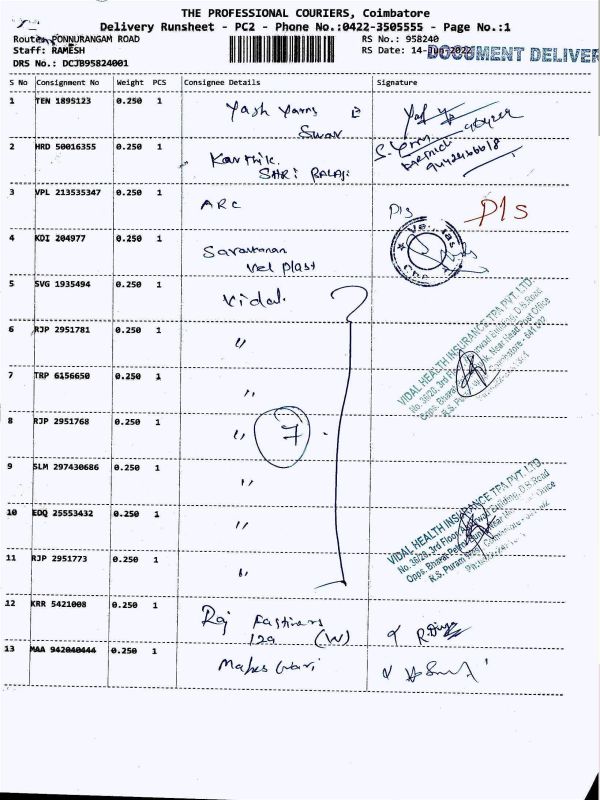 THE PROFESSIONAL COURIERS, Coimbatore
Delivery Runsheet - PC2 - Phone No.:0422-3505555 - Page No.:1
Route: PONNURANGAM ROAD RS No.: 958240
Staff: RAMESH RS Date: 14-Jun-2022 DOCUMENT DELIVER
DRS No.: DCJB95824001
S No Consignment No Weight PCS Consignee Details Signature
1 TEN 1895123 0.250 1 Yash Yarns
2 HRD 50016355 0.250 1 Karthik
SHRI BALAJI
3 VPL 213535347 0.250 1 ARC P1s P1s
4 KDI 204977 0.250 1 Saravanan
Vel Plast
5 SVG 1935494 0.250 1 Vidal
6 RJP 2951781 0.250 1 "
7 TRP 6156650 0.250 1 "
8 RJP 2951768 0.250 1 " 7
9 SLM 297430686 0.250 1 "
10 EDQ 25553432 0.250 1 "
11 RJP 2951773 0.250 1 "
VIDAL HEALTH INSURANCE TPA PVT. LTD.
No. 36/28, 3rd Floor, Agarwal Building, D.B.Road
Opps. Bharat Near Head Post Office
R.S. Puram Coimbatore - 641 002
VIDAL HEALTH INSURANCE TPA PVT. LTD.
No. 36/28, 3rd Floor, Agarwal Building, D.B.Road
Opps. Bharat Office
R.S. Puram Coimbatore
12 KRR 5421008 0.250 1 Raj
129 (W)
13 MAA 942040444 0.250 1